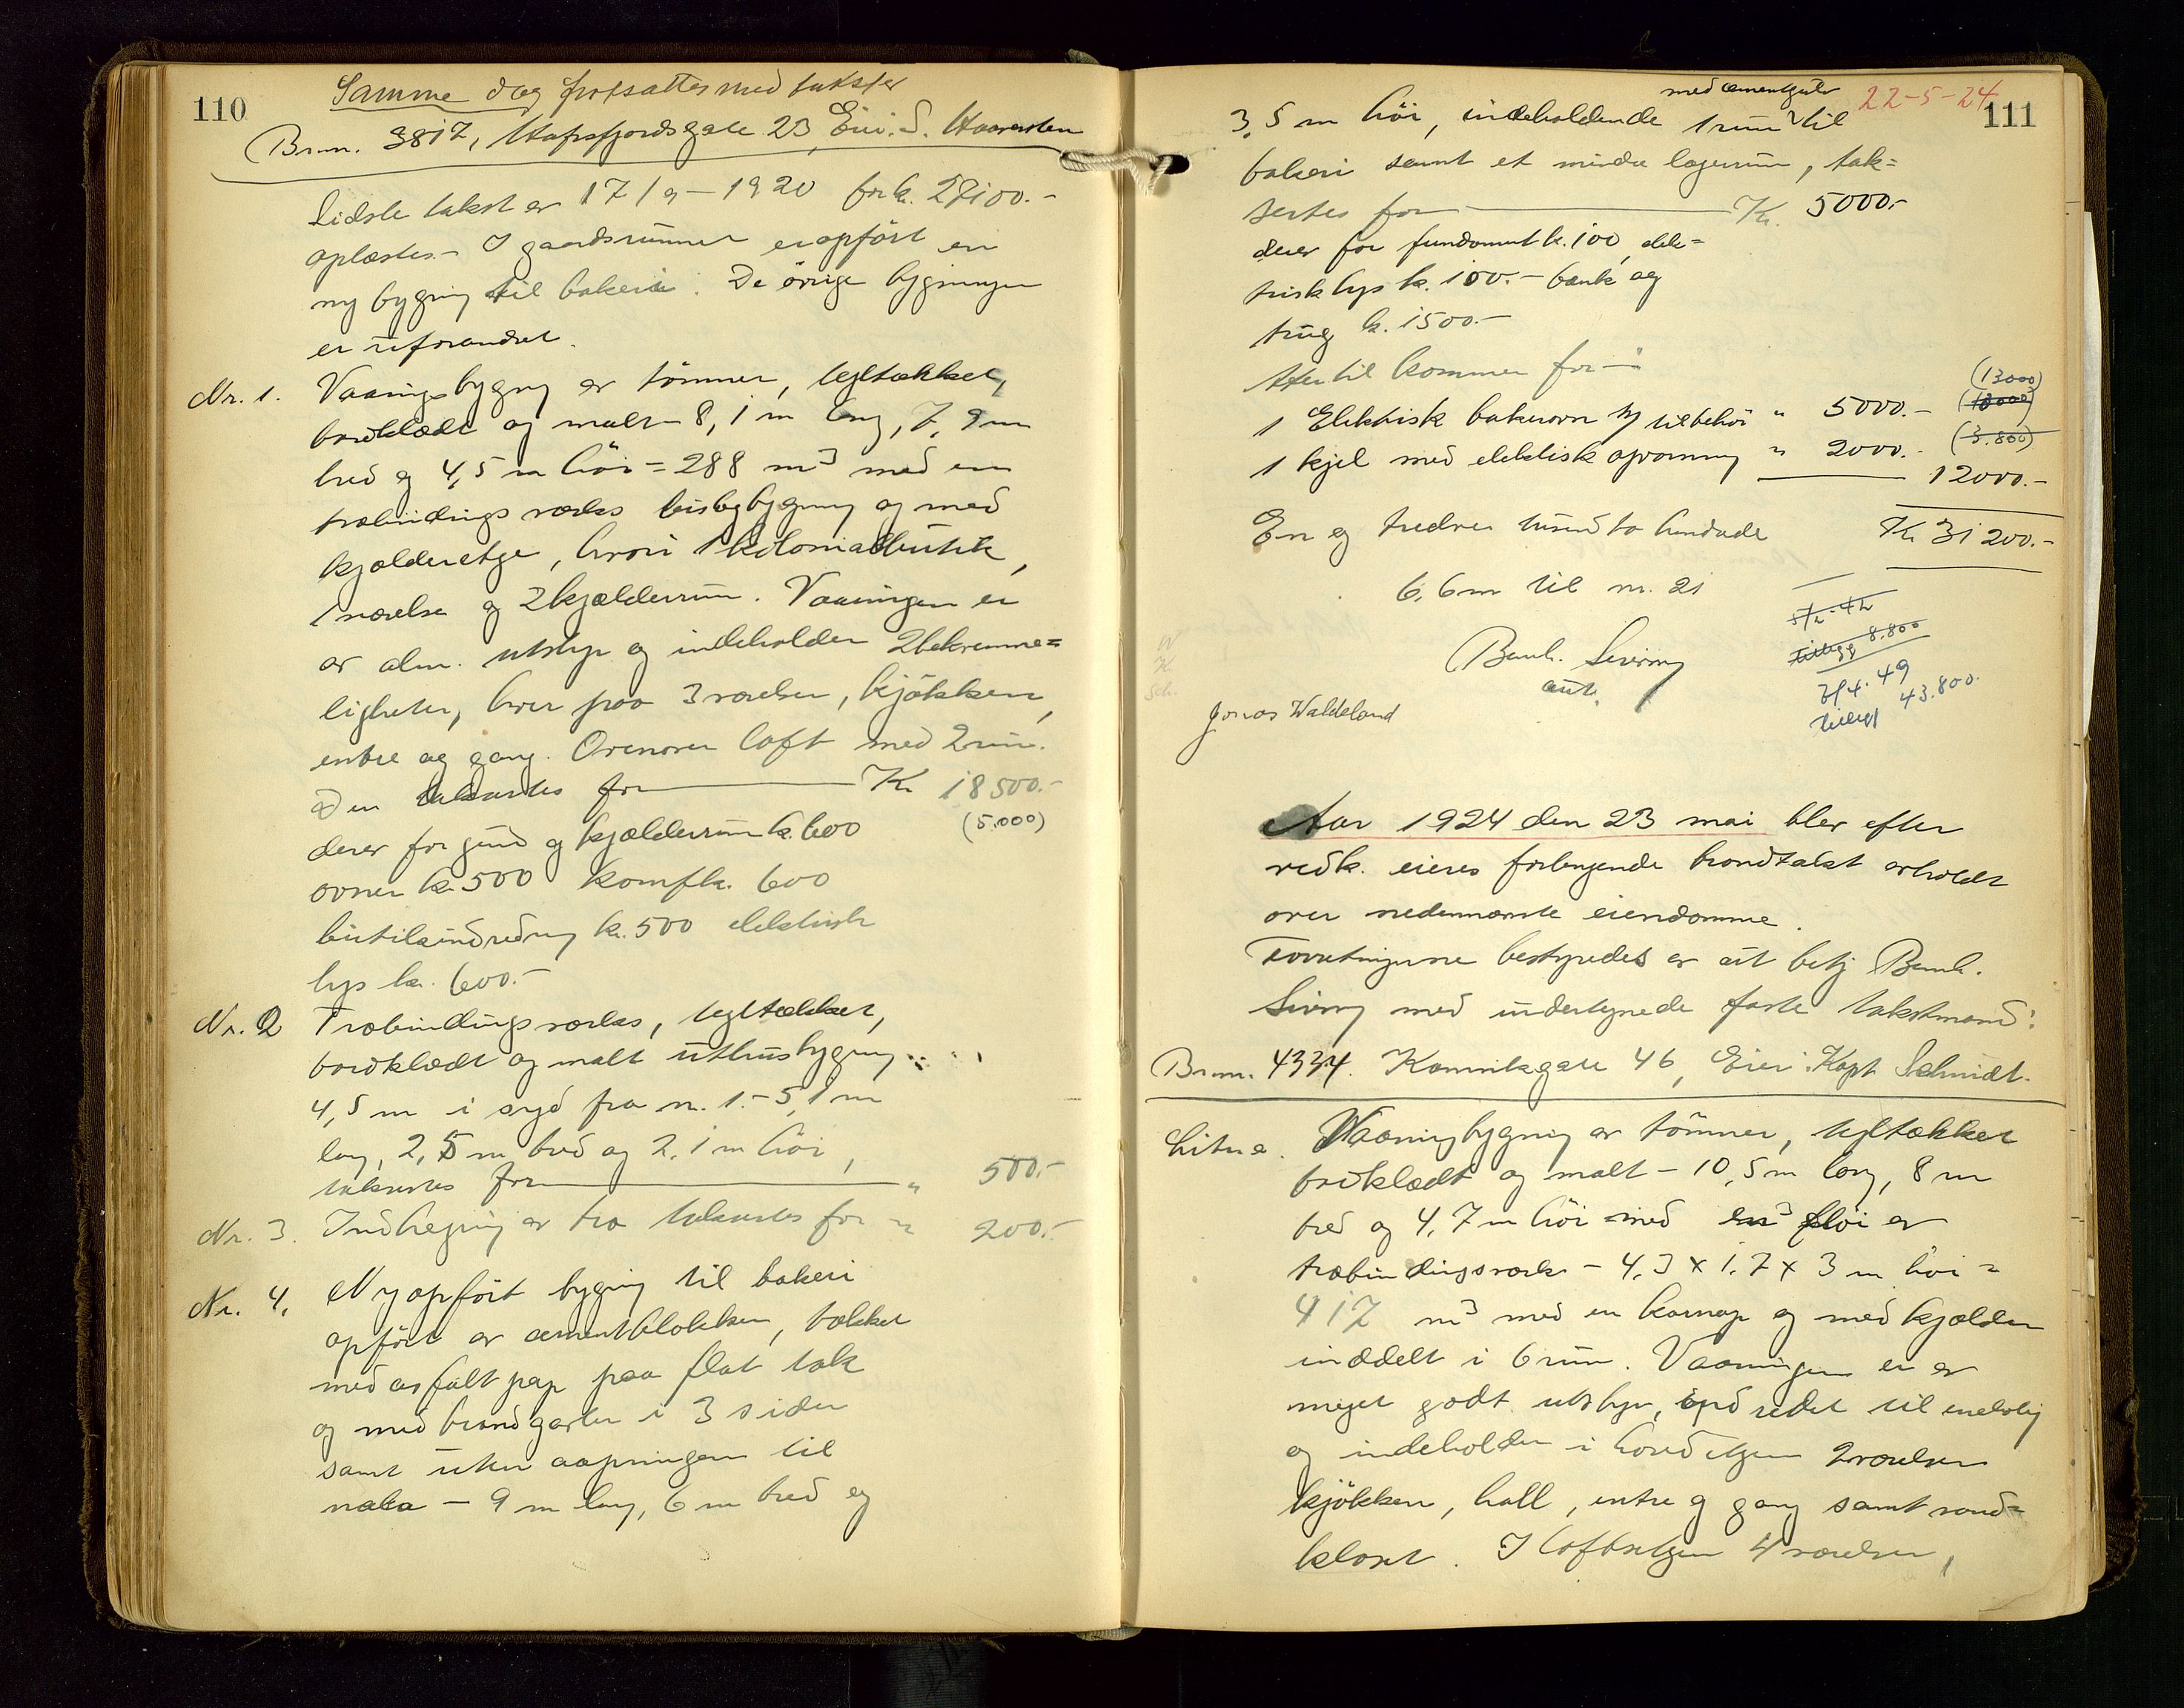 110
Samme dag fortsattes med takster
Br.nr. 3817, Hafrsfjordsgate 23, Eier: S. Haaversten
Sidste takst av 17/9 – 1920 for k. 28100.–
oplæstes. – I gaardsrummet er opført en
ny bygning til bakeri. De øvrige bygninger
er uforandret.
Nr. 1. Vaaningsbygning av tömmer, tegltækket,
bordklædt og malt – 8,1 m lang, 7,9 m
bred og 4,5 m höi = 288 m³ med en
træbindingsværks bislagbygning og med
kjælderetge, hvori 1 kolonialbutik,
1 værelse og 2 kjælderrum. Vaaningen er
av alm. utstyr og indeholder 2 bekvemme=
ligheter, hver paa 3 værelser, kjökken,
entre og gang. Ovenover loft med 2 rum.
Den taksertes for Kr. 18500.–
(5.000)
derav for grund og kjælderrum k. 600
ovner k. 500 komf k. 600
butikindredning k. 500 elektrisk
lys k. 600.–
Nr. 2 Træbindingsværks, tegltækket,
bordklædt og malt uthusbygning
4,5 m i syd fra nr. 1. – 5,1 m
lang, 2,5 m bred og 2,1 m höi,
taksertes for " 500.–
Nr. 3. Indhegning av træ taksertes for " 200.–
Nr. 4. Nyopfört bygning til bakeri
opfört av cementblokker, tækket
med asfaltpap paa flat tak
og med brandgavler i 3 sider
samt uten aapninger til
nabo – 9 m lang, 6 m bred og
22-5-24
111
med cementgulv
3,5 m höi, indeholdende 1 rum til
bakeri samt et mindre lagerrum, tak=
sertes for Kr. 5000.–
derav for fundament k. 100, elek=
trisk lys k. 100.– bænk og
trug k. 1500.–
Hertil kommer for:
1 Elektrisk bakerovn m/ tilbehör " 5000.– (13000)
(10000)
1 kjel med elektrisk opvarmning " 2000.– (3.800)
12000.–
En og tredve tusind to hundrede Kr. 31200.–
6,6 m til nr. 21
5/2.42
tillegg 8.800
3/4.49
tillegg 43.800.
Bernh. Sivering
aut.
Jonas Waldeland
Aar 1924 den 23 mai blev efter
vedk. eieres forlangende brandtakst avholdt
over nedennævnte eiendomme.
Forretningerne bestyredes av aut betj Bernh.
Sivering med undertegnede faste takstmænd:
Br.nr. 4334. Kannikgate 46, Eier: Kapt. Schmidt.
Litr. a. Vaaningsbygning av tömmer, tegltækket
bordklædt og malt – 10,5 m lang, 8 m
bred og 4,7 m höi med en flöi av
træbindingsverk – 4,3 x 1,7 x 3 m höi =
417 m³ med en karnap og med kjælder
inddelt i 6 rum. Vaaningen er av
meget godt utstyr, indredet til enebolig
og indeholder i hovedetgen 2 værelser
kjökken, hall, entre og gang samt vand=
kloset. I loftsetgen 4 værelser,